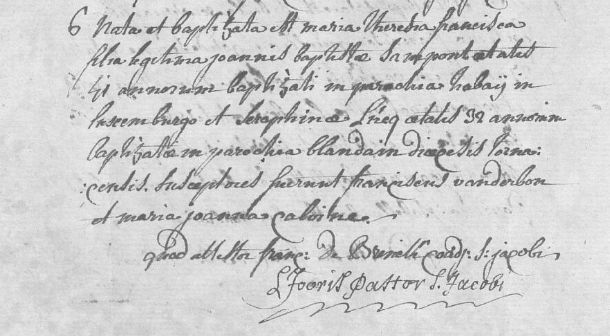 6 Nata et baptizata est maria theresia francisca
filia legitima joannis baptistæ Sampont ætatis
41 annorum baptizati in parochia habaÿ in
luxemburgo et Seraphinæ ætatis 32 annorum
baptizatæ in parochia blandain diœcesis torna:
:censis. Susceptores fuerunt franciscus vanderbon
et maria joanna
quod attestor franc: De coadj: S: jacobi
L Jooris Pastor S. Jacobi